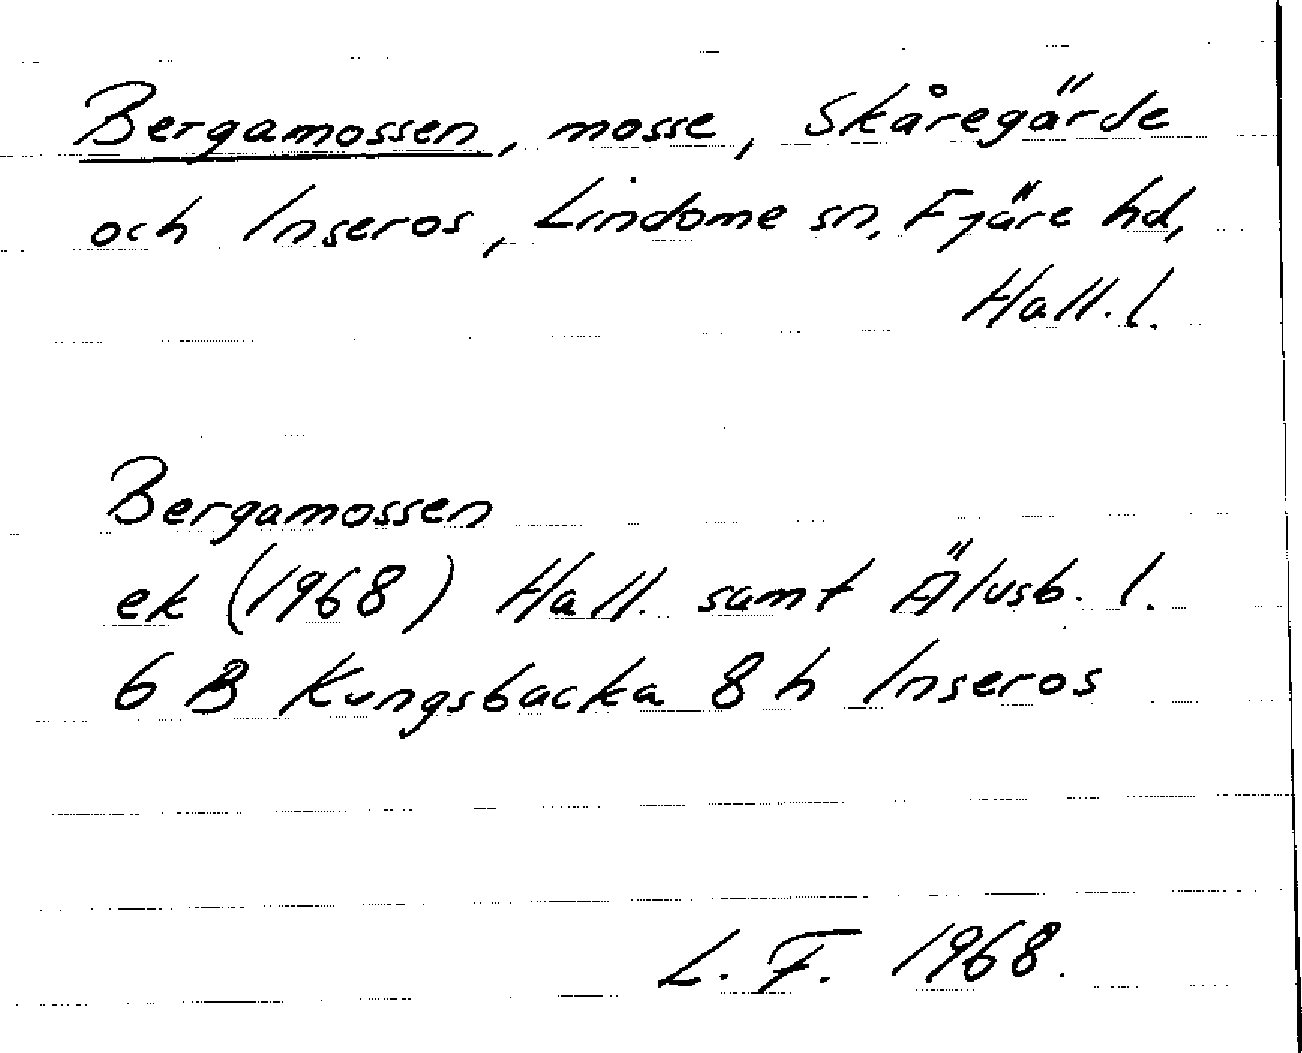 Bergamossen, mosse, Skåregärde
och Inseros, Lindome sn, Fjäre hd,
Hall. l.
Bergamossen
ek (1968) Hall. samt Älvsb. l.
6 B Kungsbacka 8 h Inseros
L. F. 1968.